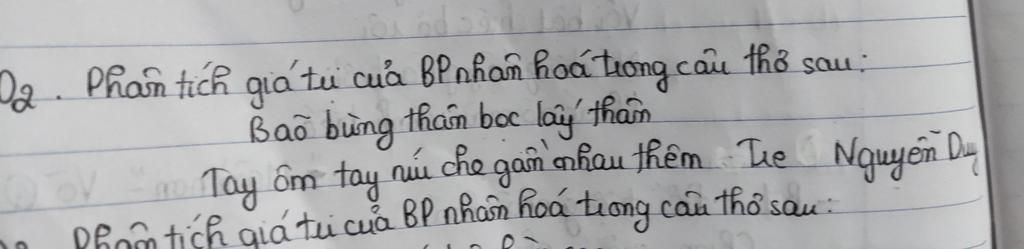 02. Phân tích giá trị của BP nhân hoá trong câu thơ sau:
Bão bùng thân bọc lấy thân
Tay ôm tay níu che gần nhau thêm Tre Nguyễn Duy
Phân tích giá trị của BP nhân hoá trong câu thơ sau: